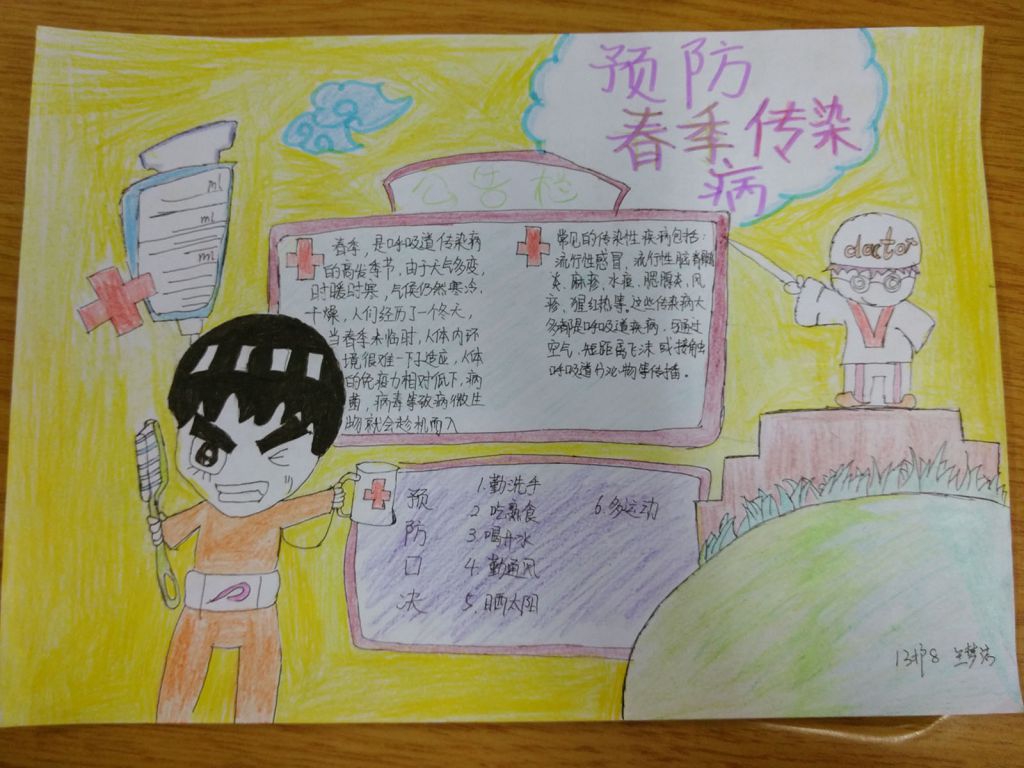 预防
春季传染
病
公告栏
春季,是呼吸道传染病
的高发季节,由于天气多变,
时暖时寒,气候仍然寒冷、
干燥,人们经历了一个冬天,
当春季来临时,人体内环
境很难一下子适应,人体
的免疫力相对低下,病
菌,病毒等致病微生
物就会趁机而入
常见的传染性疾病包括:
流行性感冒、流行性脑脊髓膜
炎、麻疹、水痘、腮腺炎、风
疹、猩红热等。这些传染病大
多都是呼吸道疾病,可通过
空气、短距离飞沫或接触
呼吸道分泌物等传播。
doctor
ml
ml
ml
预防口决
1.勤洗手
2 吃熟食
3.喝开水
4.勤通风
5.晒太阳
6.多运动
13护8